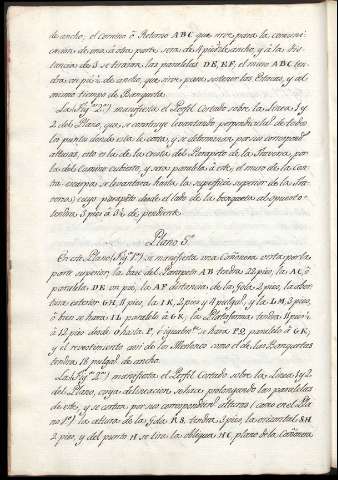 de ancho, el camino ô Retorno ABC que sirve para la comuni-
cacion de una á otra parte sera de 4 pies de ancho, y á la dis-
tancia de 3 se tiraran las paralelas DE, EF, el muro ABC ten-
dra un pie ½ de ancho, que sirve para sostener las tierras, y al
mismo tiempo de Banqueta.
La Fig.ª 2.ª manifiesta el Perfil Cortado sobre la Linea 1 y
2 del Plano, que se construye levantando perpendicula.s de todos
los puntos donde esta le corta, y se determinan por sus correspond.s
alturas, esto es la de la cresta del Parapeto de la Traversa, por
la del Camino cubierto, y sera paralela á este, el muro de la Con-
tra-escarpa se levantara hasta la superficie superior de la Tra-
versa, cuyo parapeto desde el lado de la banqueta al opuesto
tendra 3 pies ô 3½ de pendiente.
Plano 5º
En este Plano (Fig.ª 1.ª) se manifiesta una Cañonera vista por la
parte superior; la base del Parapeto AB tendra 22 pies, la AC, ô
paralela DE un pie, la AF distancia de la Gola 2 pies, la aber-
tura exterior GH, 11 pies, la IK, 2 pies y 4 pulg.s, y la LM, 3 pies,
ô bien se hara IL paralelo á GK, la Plataforma tendra 11 pies ½
á 12 pies desde O hasta P, è igualm.te se hara PQ paralelo á GK,
y el revestimiento asi de los Merlones como el de las Banquetas
tendra 18 pulg.s de ancho.
La (Fig.ª 2.ª) manifiesta el Perfil Cortado sobre la Linea 1 y 2
del Plano, cuya delineacion se hace, prolongando las paralelas
de este, y se cortan por sus correspondien.s alturas (como en el Pla-
no 1º) la altura de la Gola RS, tendra 3 pies, la orizontal SH
2 pies, y del punto H se tira la obliqua HC, plano de la cañonera